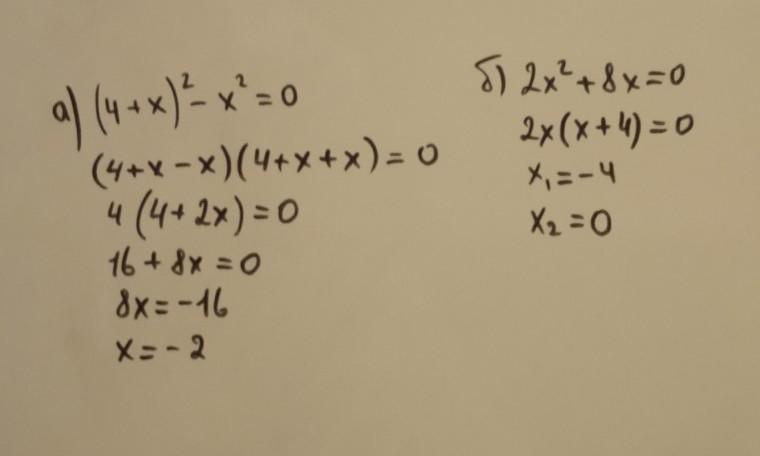 а) (4+x)² - x² = 0
(4+x-x)(4+x+x) = 0
4(4+2x) = 0
16 + 8x = 0
8x = -16
x = -2
б) 2x² + 8x = 0
2x(x+4) = 0
x₁ = -4
x₂ = 0